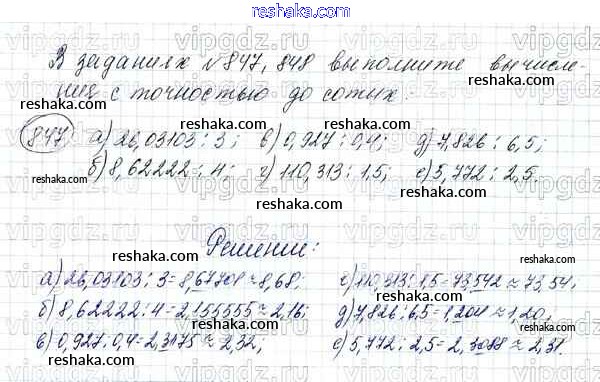 reshaka.com
В заданиях №847, 848 выполните вычисле-
ния с точностью до сотых.
847. а) 26,03103 : 3; в) 0,927 : 0,4; д) 7,826 : 6,5;
б) 8,62222 : 4; г) 110,313 : 1,5; е) 5,772 : 2,5.
Решение:
а) 26,03103 : 3 = 8,67701 ≈ 8,68; г) 110,313 : 1,5 = 73,542 ≈ 73,54;
б) 8,62222 : 4 = 2,155555 ≈ 2,16; д) 7,826 : 6,5 = 1,204 ≈ 1,20;
в) 0,927 : 0,4 = 2,3175 ≈ 2,32; е) 5,772 : 2,5 = 2,3088 ≈ 2,31.
reshaka.com